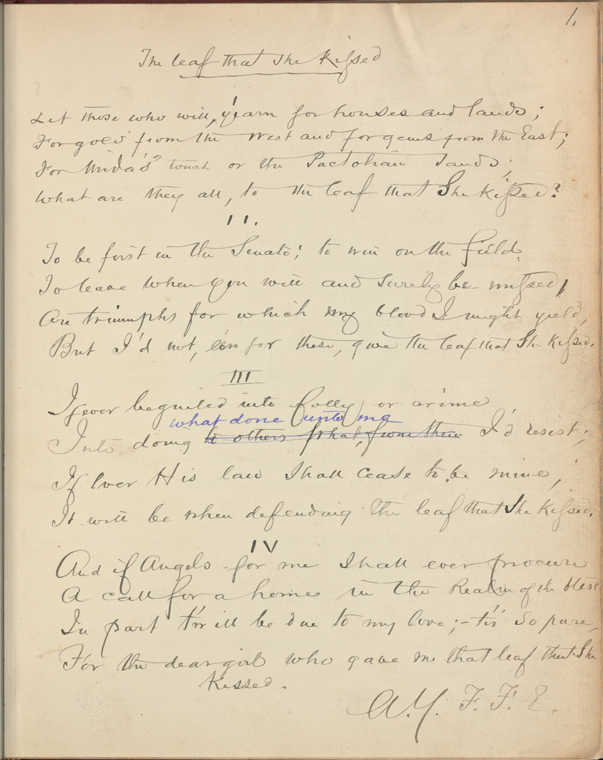 1.
The leaf that She Kissed
I
Let those who will, yearn for houses and lands;
For gold from the West and for gems from the East;
For Mida's touch or the Pactolian Sands;
What are they all, to the leaf that She Kissed?
II.
To be first in the Senate; to win on the field,
To leave when you will and surely be missed,
Are triumphs for which my blood I might yield,
But I'd not, e'en for these, give the leaf that She Kissed.
III
If ever beguiled into folly or crime
what done unto me
Into doing to others what from them I'd resist;
If Ever His law Shall cease to be mine,
It will be when defending the leaf that She Kissed.
IV
And if Angels for me Shall ever procure
A call for a home in the Realm of the blest
In part t'will be due to my love;- tis' So pure,
For the dear girl who gave me that leaf that She
Kissed.
A.Y. F. F. E.